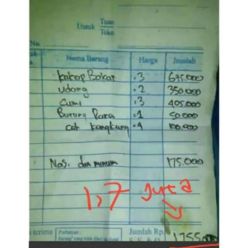 Untuk Tuan
Toko
No.
Nama Barang Harga Jumlah
kakap Bakar 3 675.000
udang 2 350.000
Cumi 3 405.000
Burung Dara 1 50.000
cah kangkung 4 100.000
Nasi dan minum 175.000
1,7 Juta
Jumlah Rp. 1755.000